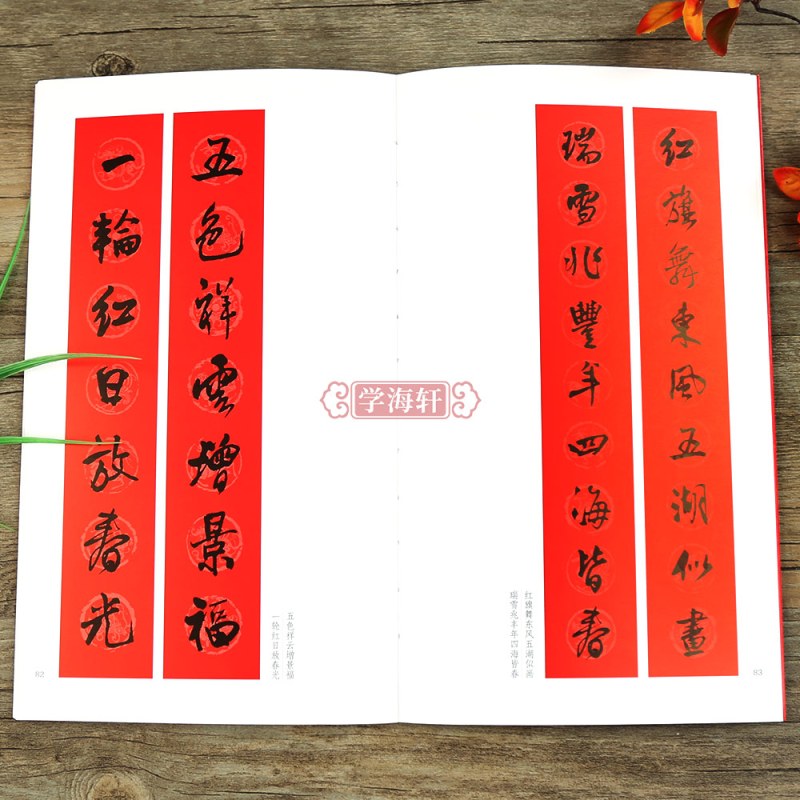 五色祥雲增景福
一輪红日放春光
五色祥云增景福
一轮红日放春光
62
学海轩
红旗舞東風五湖似畫
瑞雪兆豐年四海皆春
红旗舞东风五湖似画
瑞雪兆丰年四海皆春
63